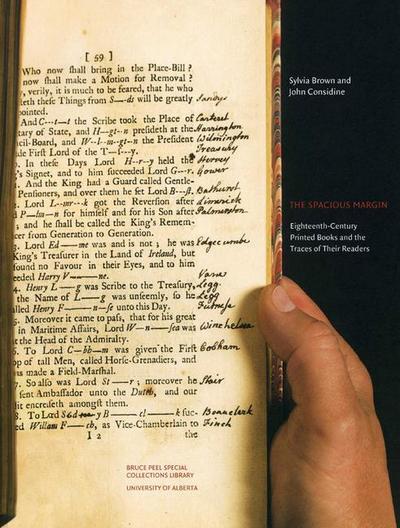 [ 59 ]
Who now shall bring in the Place-Bill?
now shall make a Motion for Removal?
, verily, it is much to be feared, that he who
keth these Things from S——ds will be greatly Sandys
pointed.
And C---t---t the Scribe took the Place of Carteret
tary of State, and H—gt--n presideth at the Harrington
cil-Board, and W--l-m--gt--n the President Wilmington
de First Lord of the T—s---y. Treasury
. In these Days Lord H--r--y held the Hervey
's Signet, and to him succeeded Lord G--r. Gower
. And the King had a Guard called Gentle-
Pensioners, and over them he set Lord B---st. Bathurst
. Lord L--m--k got the Reversion after Limerick
d P—lm—n for himself and for his Son after Palmerston
; and he shall be called the King's Remem-
cer from Generation to Generation.
. Lord Ed——me was and is not; he was Edgecumbe
King's Treasurer in the Land of Ireland, but
found no Favour in their Eyes, and to him
eeded Harry V———ne. Vane
4. Henry L——g was Scribe to the Treasury, Legg
the Name of L——g was unseemly, so he Legg
lled Henry F——n--se unto this Day. Furnese
5. Moreover it came to pass, that for his great
in Maritime Affairs, Lord W—n—sea was Winchelsea
t the Head of the Admiralty.
6. To Lord C—bb—m was given the First Cobham
p of tall Men, called Horse-Grenadiers, and
as made a Field-Marshal.
7. So also was Lord St——r; moreover he Stair
sent Ambassador unto the Dutch, and our
it encreaseth amongst them.
8. To Lord Sdd—y B——cl——k suc- Beauclerk
ed Willam F—ch, as Vice-Chamberlain to Finch
I 2 the
Sylvia Brown and
John Considine
THE SPACIOUS MARGIN
Eighteenth-Century
Printed Books and the
Traces of Their Readers
BRUCE PEEL SPECIAL
COLLECTIONS LIBRARY
UNIVERSITY OF ALBERTA